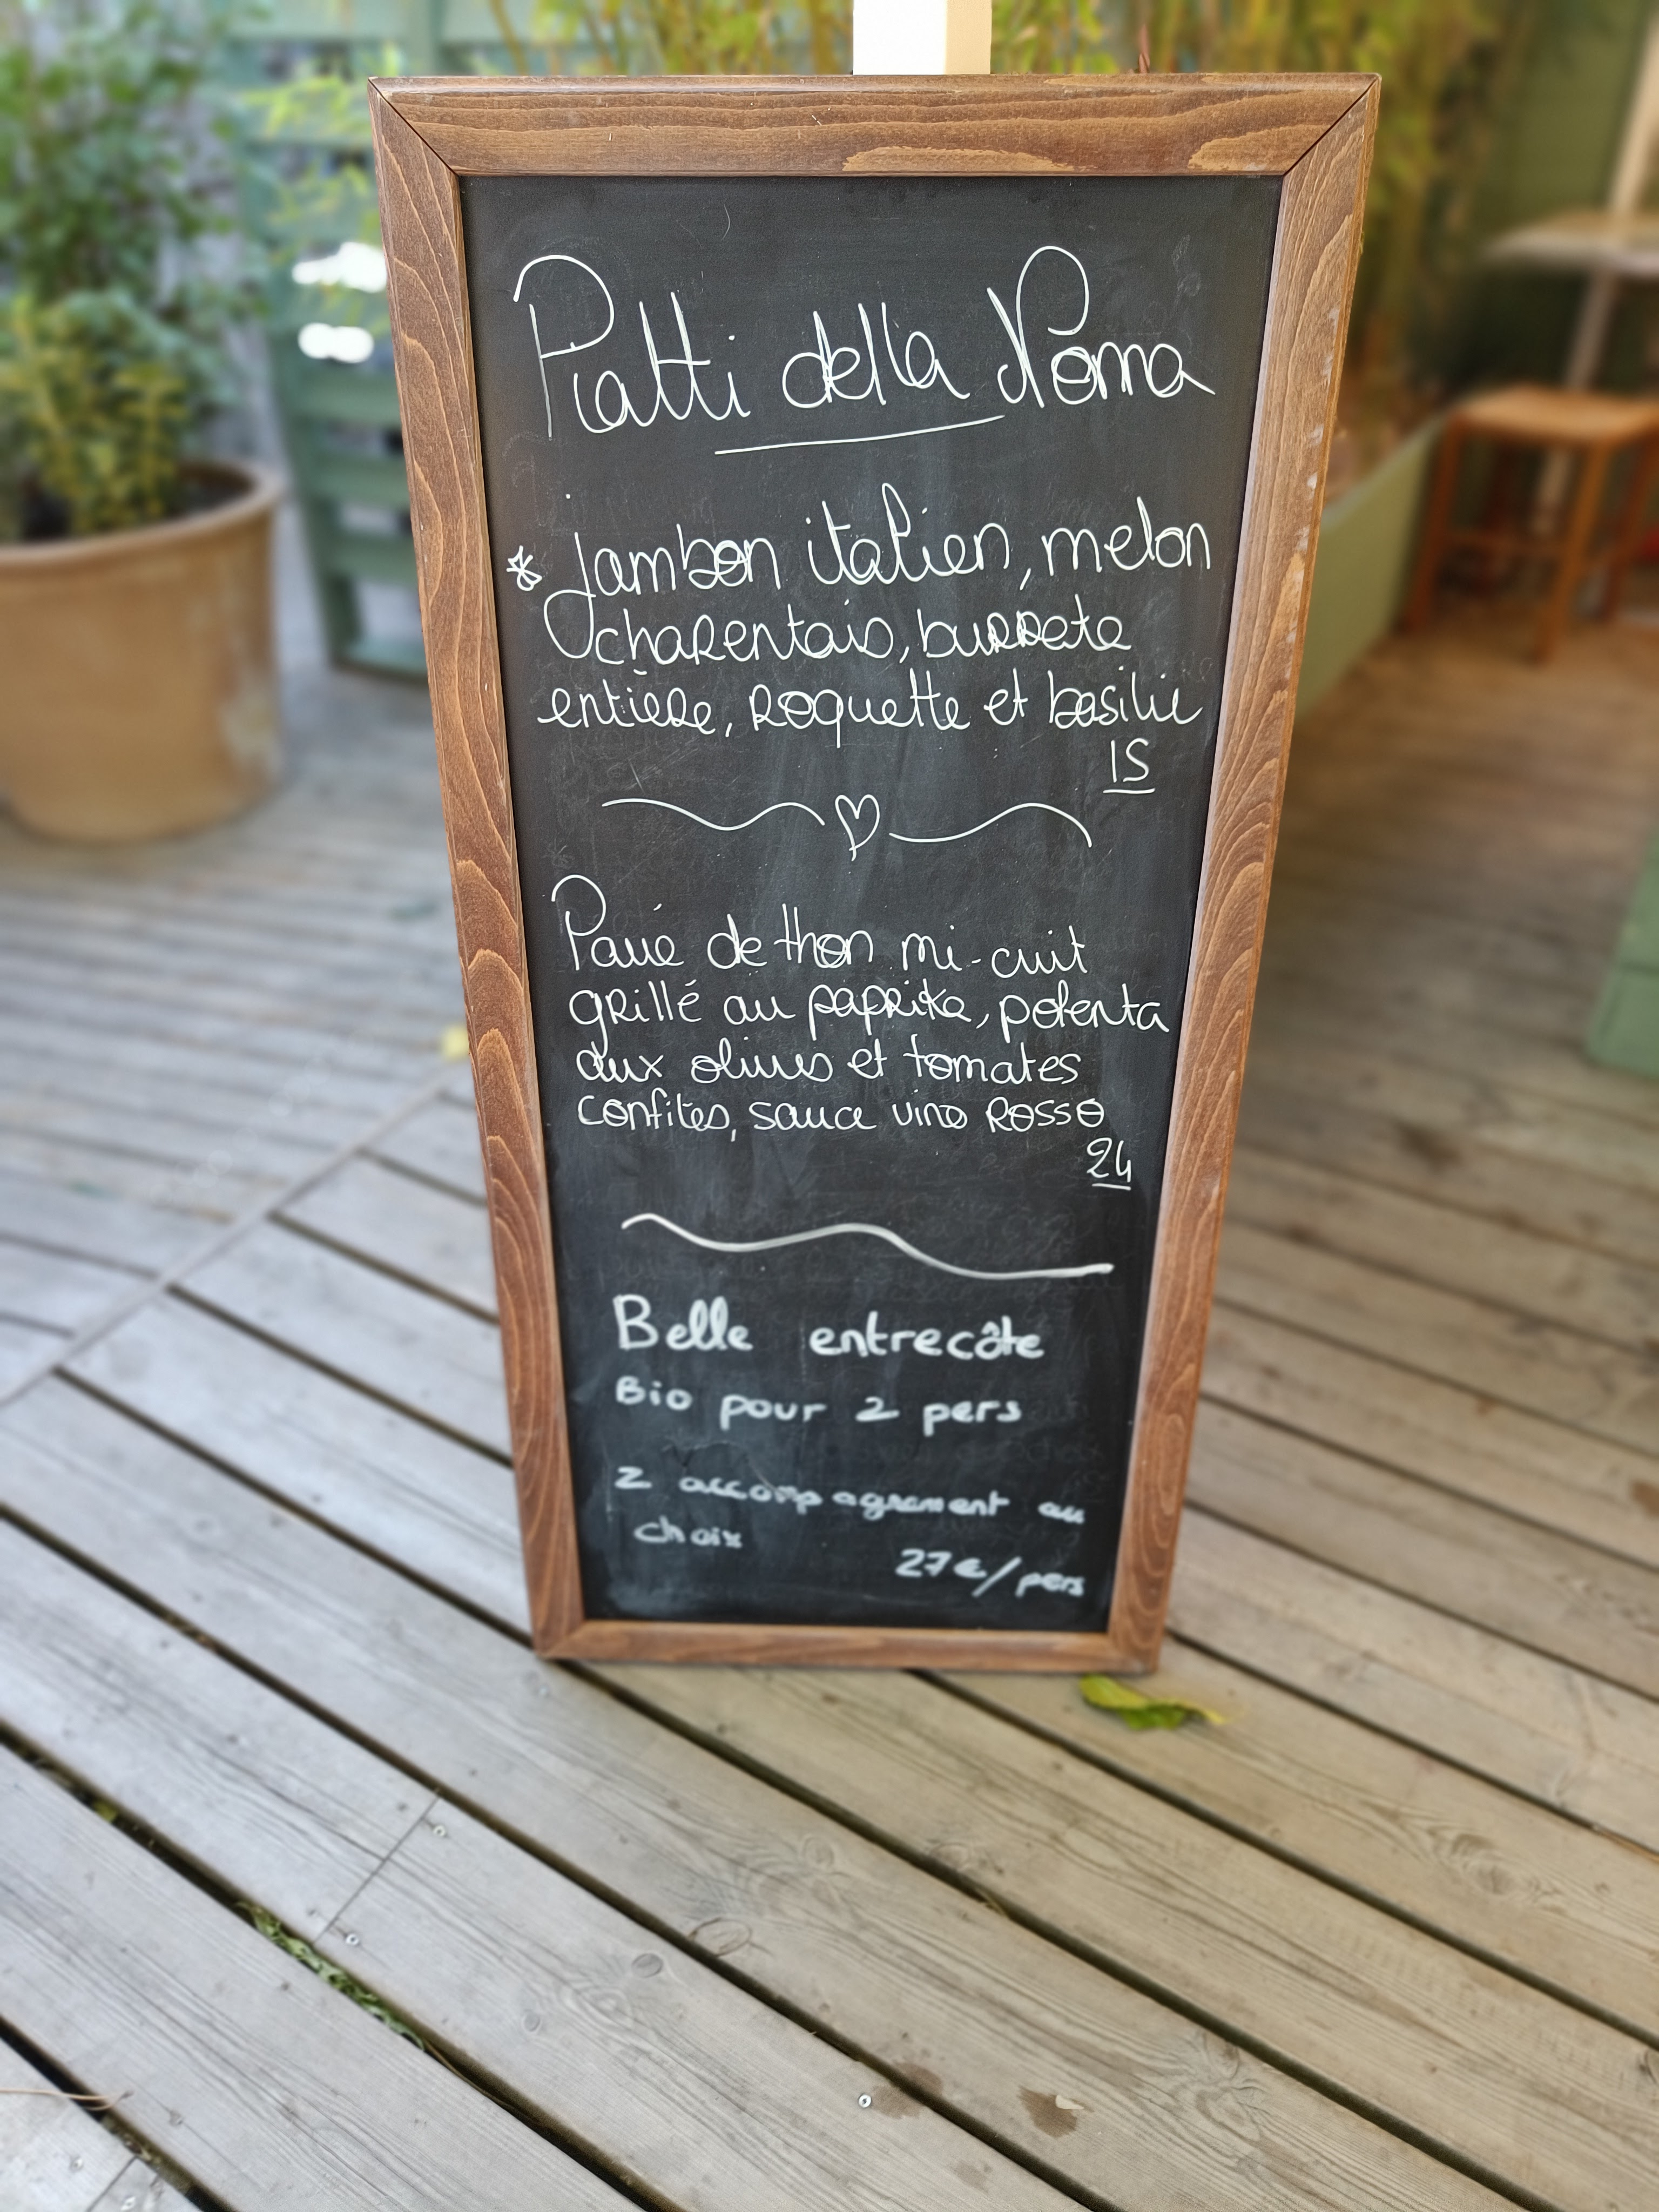 Piatti della Noma
* Jambon italien, melon
charentais, burrata
entière, roquette et basilic
15
Pavé de thon mi-cuit
grillé au paprika, polenta
aux olives et tomates
confites, sauce vino rosso
24
Belle entrecôte
Bio pour 2 pers
2 accompagnement au
choix
27€/pers